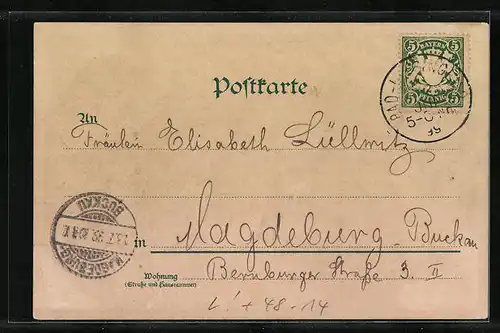 Postkarte
5 BAYERN 5
5 PFENNIG 5
BAD-
5-6 NM
99
An
Fräulein Elisabeth Lüllwitz
MAGDEBURG
BUCKAU
in Magdeburg-Buckau
Wohnung Bernburger Straße 3. II
(Straße und Hausnummer)
L! + 48-14